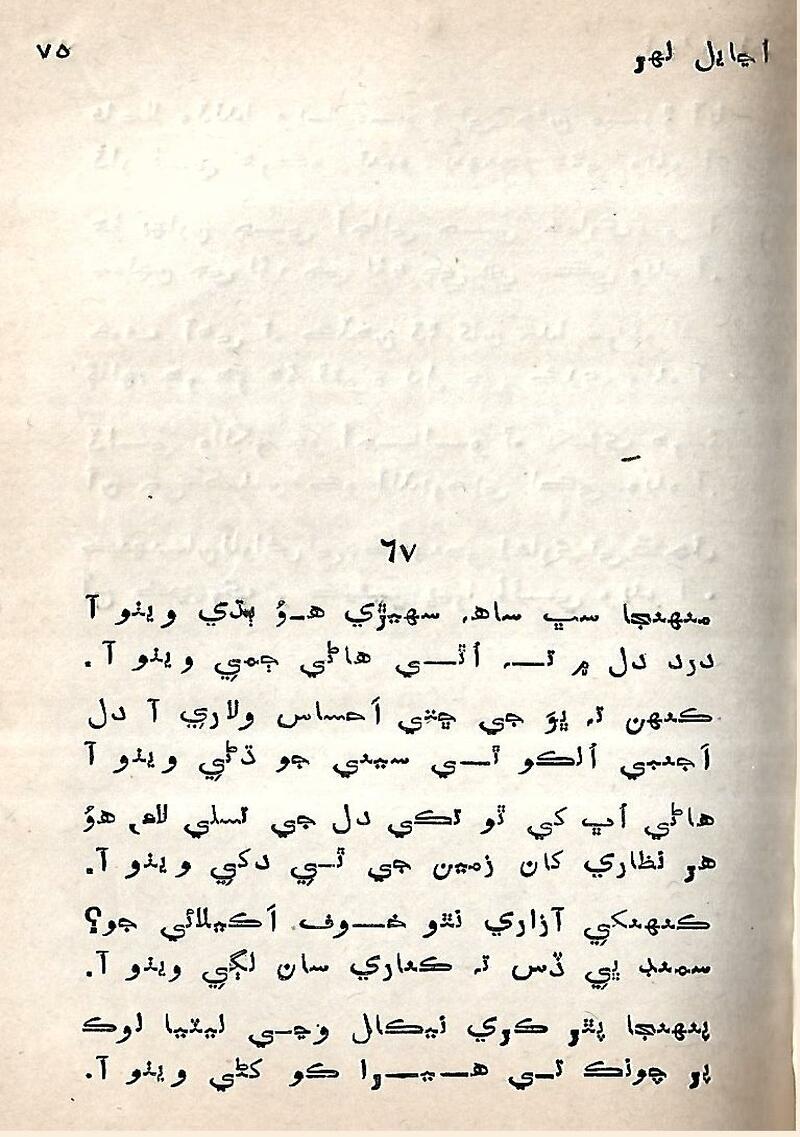 اڃايل لهر
٧٥
٦٧
منهنجا سڀ ساهہ سهيڙي هوُ ٻڌي ويٺو آ
درد دل ۾ تہ اُٿي هاڻي ڄمي ويٺو آ.
ڪنهن تہ ڀوَ جي ڇتي اَحساس ولاري آ دل
اَجنبي اُلڪو ٿي سيني جو ڌڻي ويٺو آ
هاڻي اُڀ کي ٿو تڪي دل جي تسلي لاءِ هوُ
هر نظاري کان زمين جي ٿي دکي ويٺو آ.
ڪنهنکي آزاري نٿو خوف اَڪيلائي جو؟
سمنڊ ڀي ڏس تہ ڪناري سان لڳي ويٺو آ.
پنهنجا پٿر ڪري نيڪال وڃي ليٽيا لوڪ
پر چونڪ تي هيرا ڪو کڻي ويٺو آ.